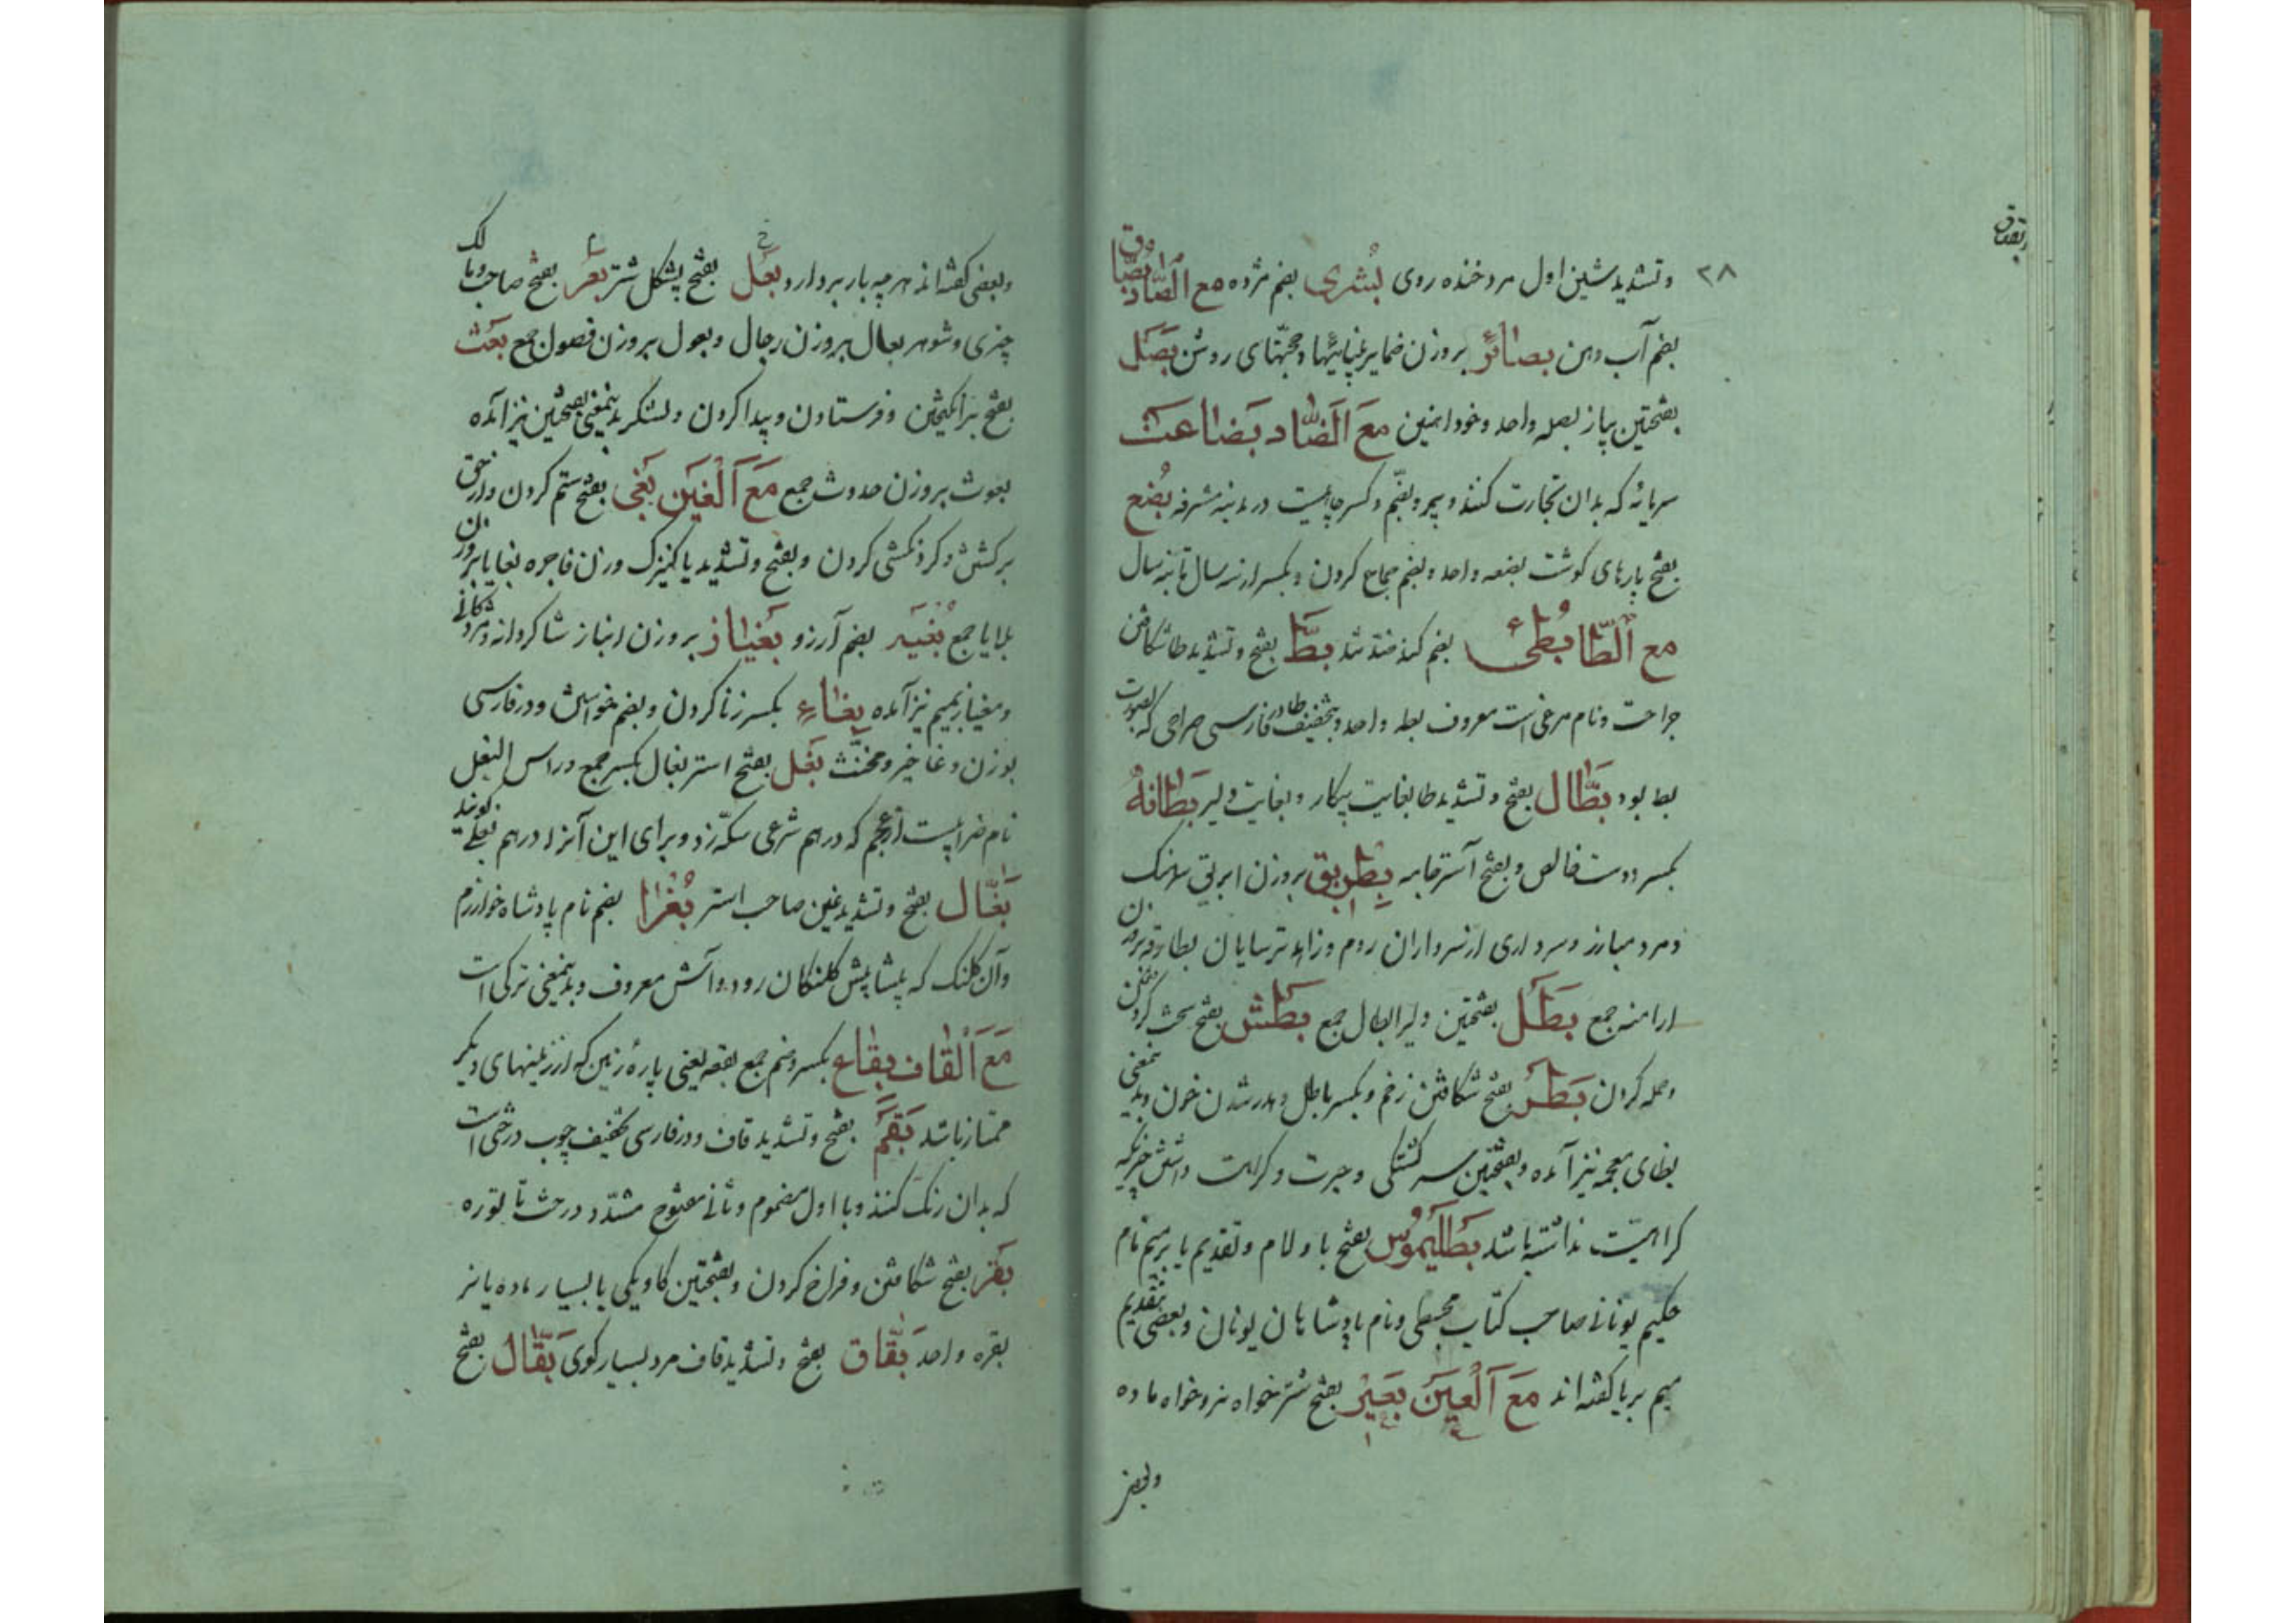 بصاق
۲۸
وتشدید شین اول مرد خنده روی بُشری بضم مژده مع الصّاد بُصاق
بضم آب دهن بصائر بروزن ضمایر بینائیها وحجّتهای روشن بَصَل
بفتحتین پیاز بصله واحد وخود آهنین مَعَ الضّاد بَضاعت
سرمایهٔ که بدان تجارت کنند و بضم وکسر چاهیست در مدینه مشرفه بُضع
بفتح پارهای کوشت بضعه واحد وبضم جماع کردن وبکسر از سه سال تا نه سال
مع الطّا بُطئ بضم کند شد بَطّ بفتح وتشدید طا شکافتن
جراحت ونام مرغی است معروف بطه واحد وبتخفیف طا در فارسی صراحی که بصورت
بط بود بَطّال بفتح وتشدید طا بغایت بیکار وبغایت دلیر بَطانهُ
بکسر دوست خالص وبفتح آستر جامه بِطریق بروزن ابریق
ومرد مبارز وسرداری از سرداران روم وزاهد ترسایان بطارقه بروزن
ارامنه جمع بَطَل بفتحتین دلیر ابطال جمع بَطش بفتح سخت گرفتن
وحمله کردن بَطر بفتح شکافتن زخم وبکسر باطل وهدر شدن خون وبدینمعنی
بظای معجمه نیز آمده وبفتحتین سرکشتکی وحیرت وکراهت داشتن چیزیکه
کراهیّت نداشته باشد بَطَلَیموُس بفتح با ولام وتقدیم یا بر میم نام
حکیم یونانی صاحب کتاب مجسطی ونام پادشاهان یونان وبعضی بتقدیم
میم بر یا کفته اند مَعَ اَلْعین بَعیْر بفتح شتر خواه نر وخواه ماده
وبعضی
وبعضی کفته اند هرچه بار بردارد بَعْل بفتح پشکل شتر بَعْر بفتح صاحب ومالک
چیزی وشوهر بعال بروزن رجال وبعول بروزن فصول جمع بَعْث
بفتح برانکیختن وفرستادن وپیدا کردن ولشکر بدینمعنی بفتحتین نیز آمده
بعوث بروزن حدوث جمع مَعَ اَلْغین بَغی بفتح ستم کردن واز حق
برکشتن وکردنکشی کردن وبفتح وتشدید یا کنیزک وزن فاجره بغایا بروزن
بلایا جمع بُغْیَه بضم آرزو بَغیاز بروزن انباز شاکردانه ومژدکانی
ومغیاز بمیم نیز آمده بِغاءِ بکسر زنا کردن وبضم خواهش ودر فارسی
بوزن دغا خیز ومخنّث بَغْل بفتح استر بغال بکسر جمع وراس البغل
نام ضرابیست از عجم که درهم شرعی سکّه زد وبرای این آنرا درهم بغلی کویند
بَغّال بفتح وتشدید غین صاحب استر بُغْرا بضم نام پادشاه خوارزم
وآن کلنک که پیشاپیش کلنکان رود وآش معروف وبدینمعنی ترکی است
مَعَ اَلْقاف بِقاع بکسر وضم جمع بقعه یعنی پارهٔ زمین که از زمینهای دیکر
ممتاز باشد بَقَّم بفتح وتشدید قاف ودر فارسی بتخفیف چوب درختی است
که بدان رنک کنند وبا اول مضموم وثانی مفتوح مشدّد درخت تاتوره
بَقْر بفتح شکافتن وفراخ کردن وبفتحتین کاو یکی یا بسیار ماده یا نر
بقره واحد بَقّاق بفتح وتشدید قاف مرد بسیار کوی بَقّال بفتح